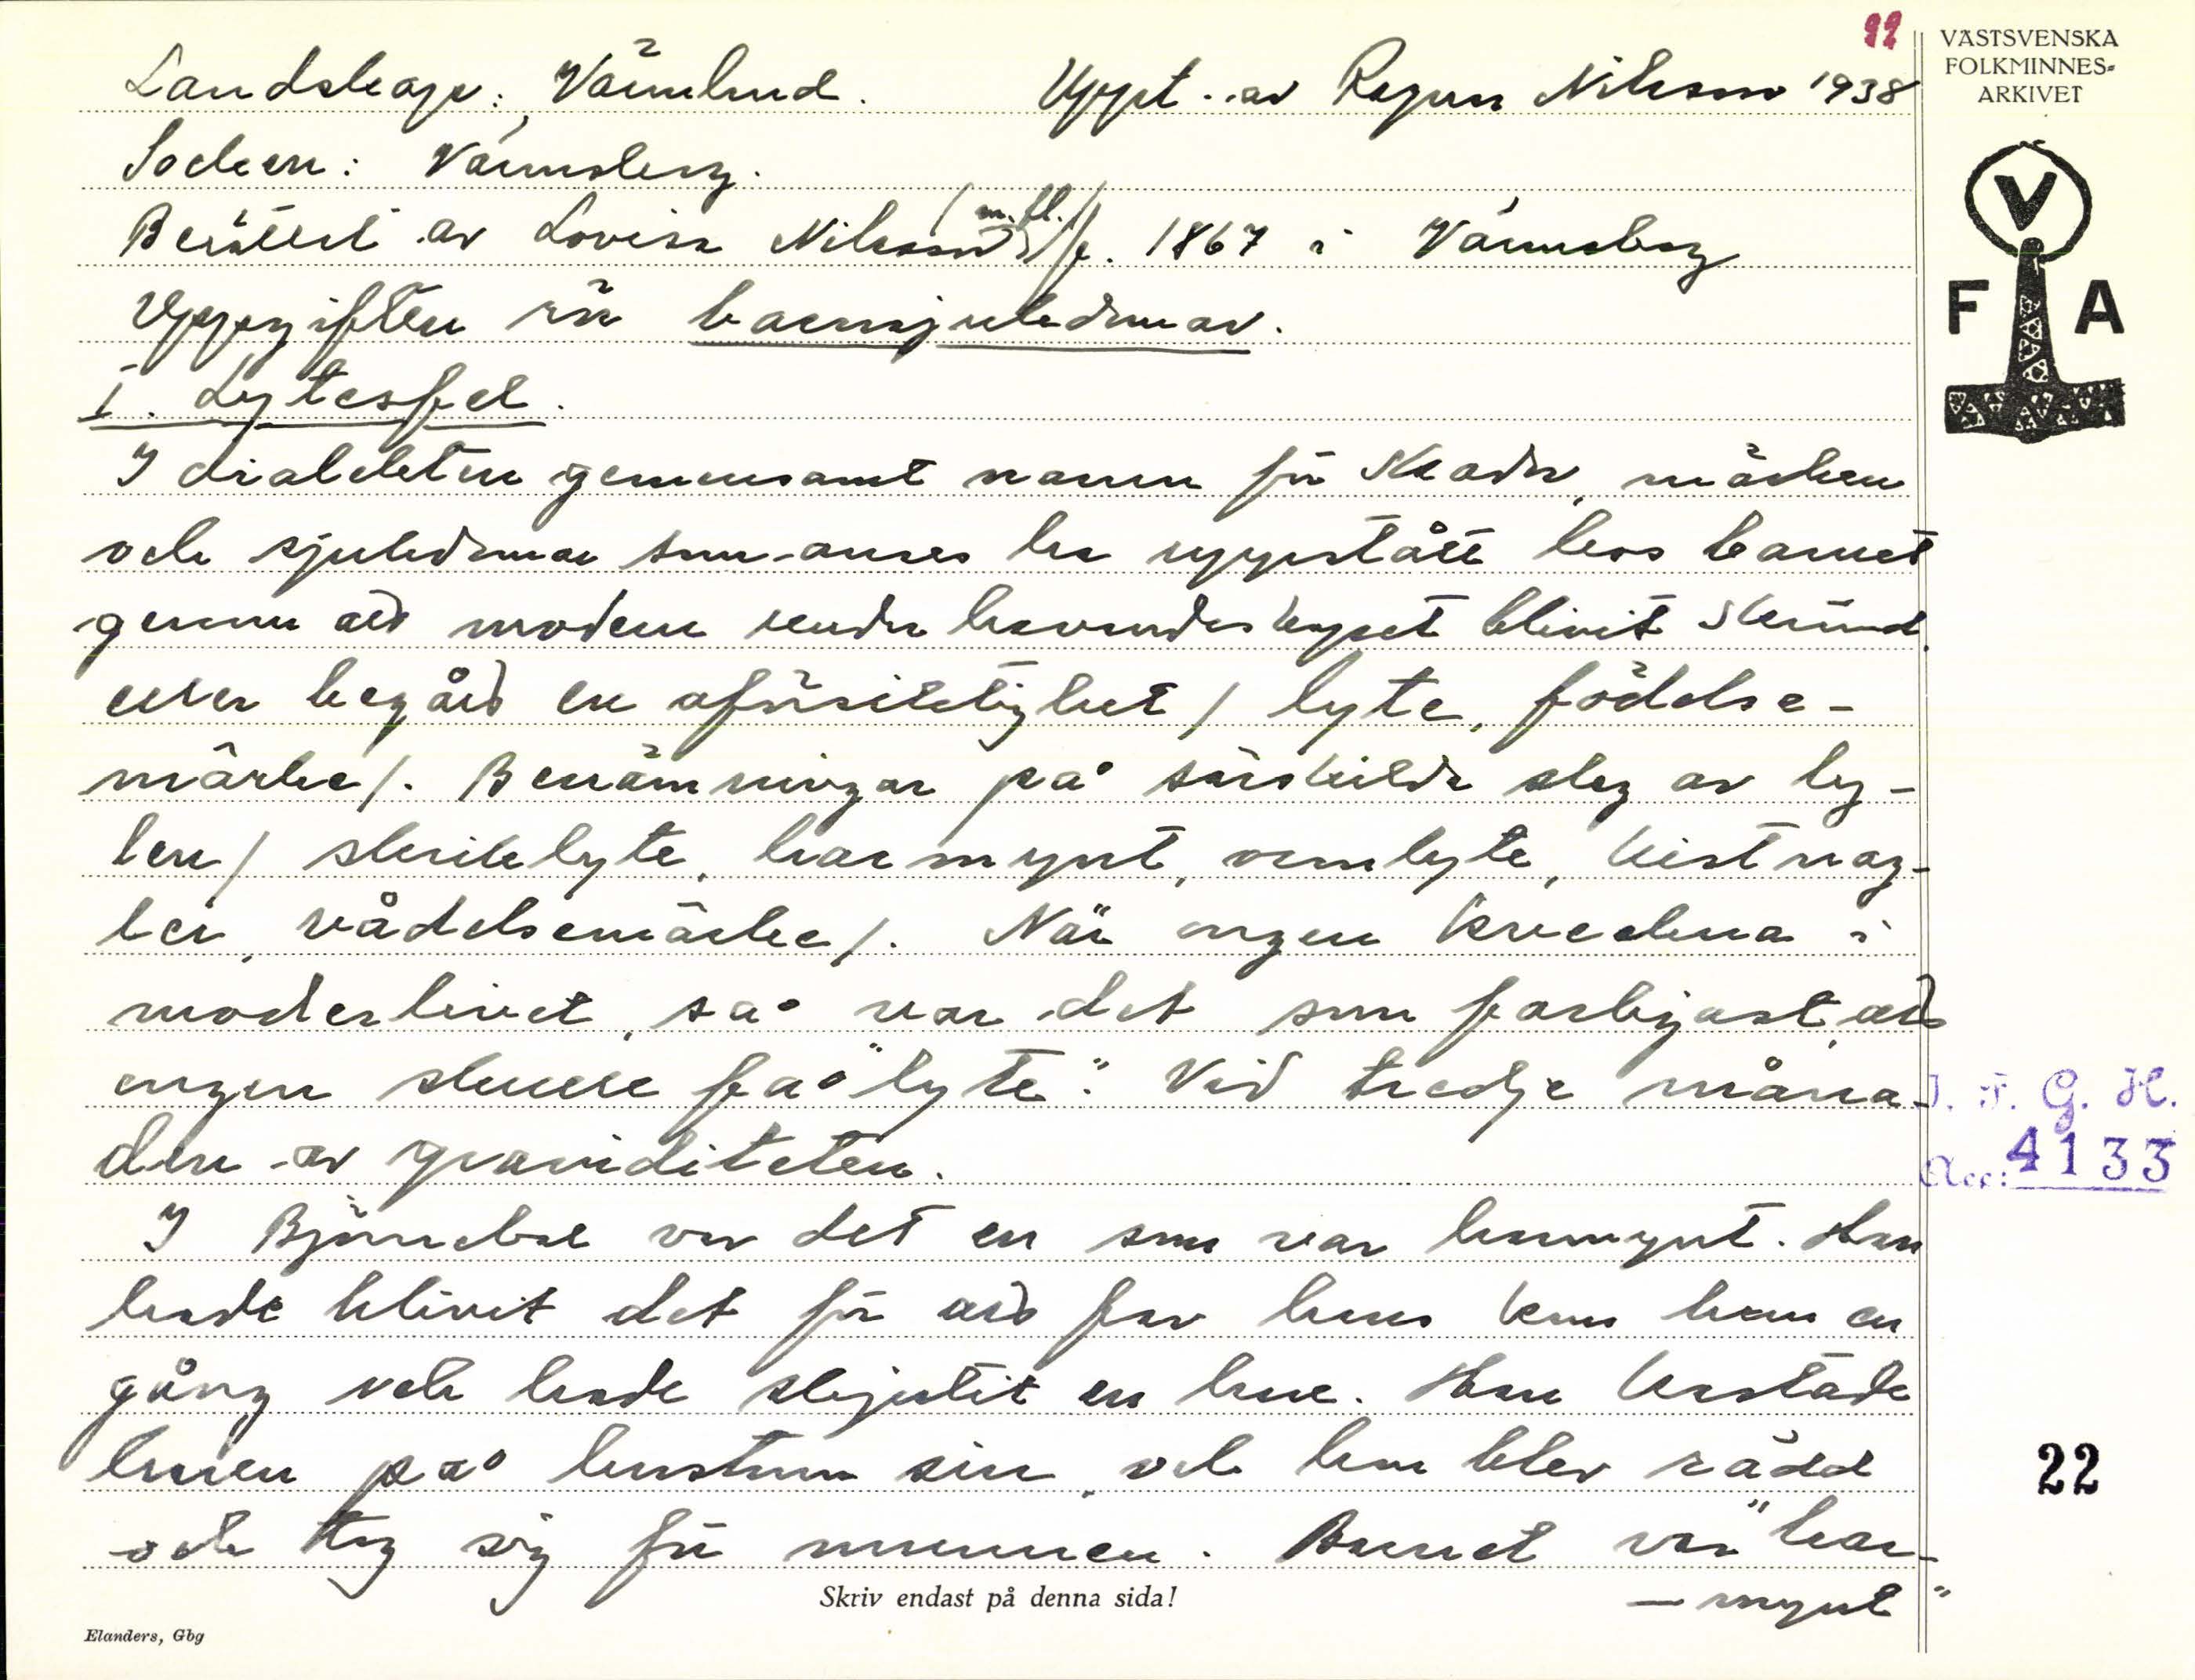 22
VÄSTSVENSKA
FOLKMINNES-
ARKIVET
V
F A
Landskap: Värmland. Uppt. av Ragnar Nilsson 1938
Socken: Värmskog.
Berättat av Lovisa Nilsson (m. fl.) f. 1867 i Värmskog
Uppgiften rör barnsjukdomar.
I. Lytesfel.
I dialekten gemensamt namn för skador, märken
och sjukdomar som anses ha uppstått hos barnet
genom att modern under havandeskapet blivit skrämd
eller begått en oförsiktighet / lyte, födelse-
märke/. Benämningar på särskilda slag av ly-
ten / skriklyte, harmynt, ormlyte, kistnag-
lar, vådelsemärke/. När ongen kveckna i
moderlivet, så var det som farligast, att
ongen skulle få "lyte". Vid tredje måna-
den av graviditeten.
I Björnebol var det en som var harmynt. Han
hade blivit det för att far hans kom hem en
gång och hade skjutit en hare. Han kastade
haren på hustrun sin, och hon blev rädd
och tog sig för munnen. Barnet var "har-
- mynt"
I. F. G. H.
Acc: 4133
22
Skriv endast på denna sida!
Elanders, Gbg